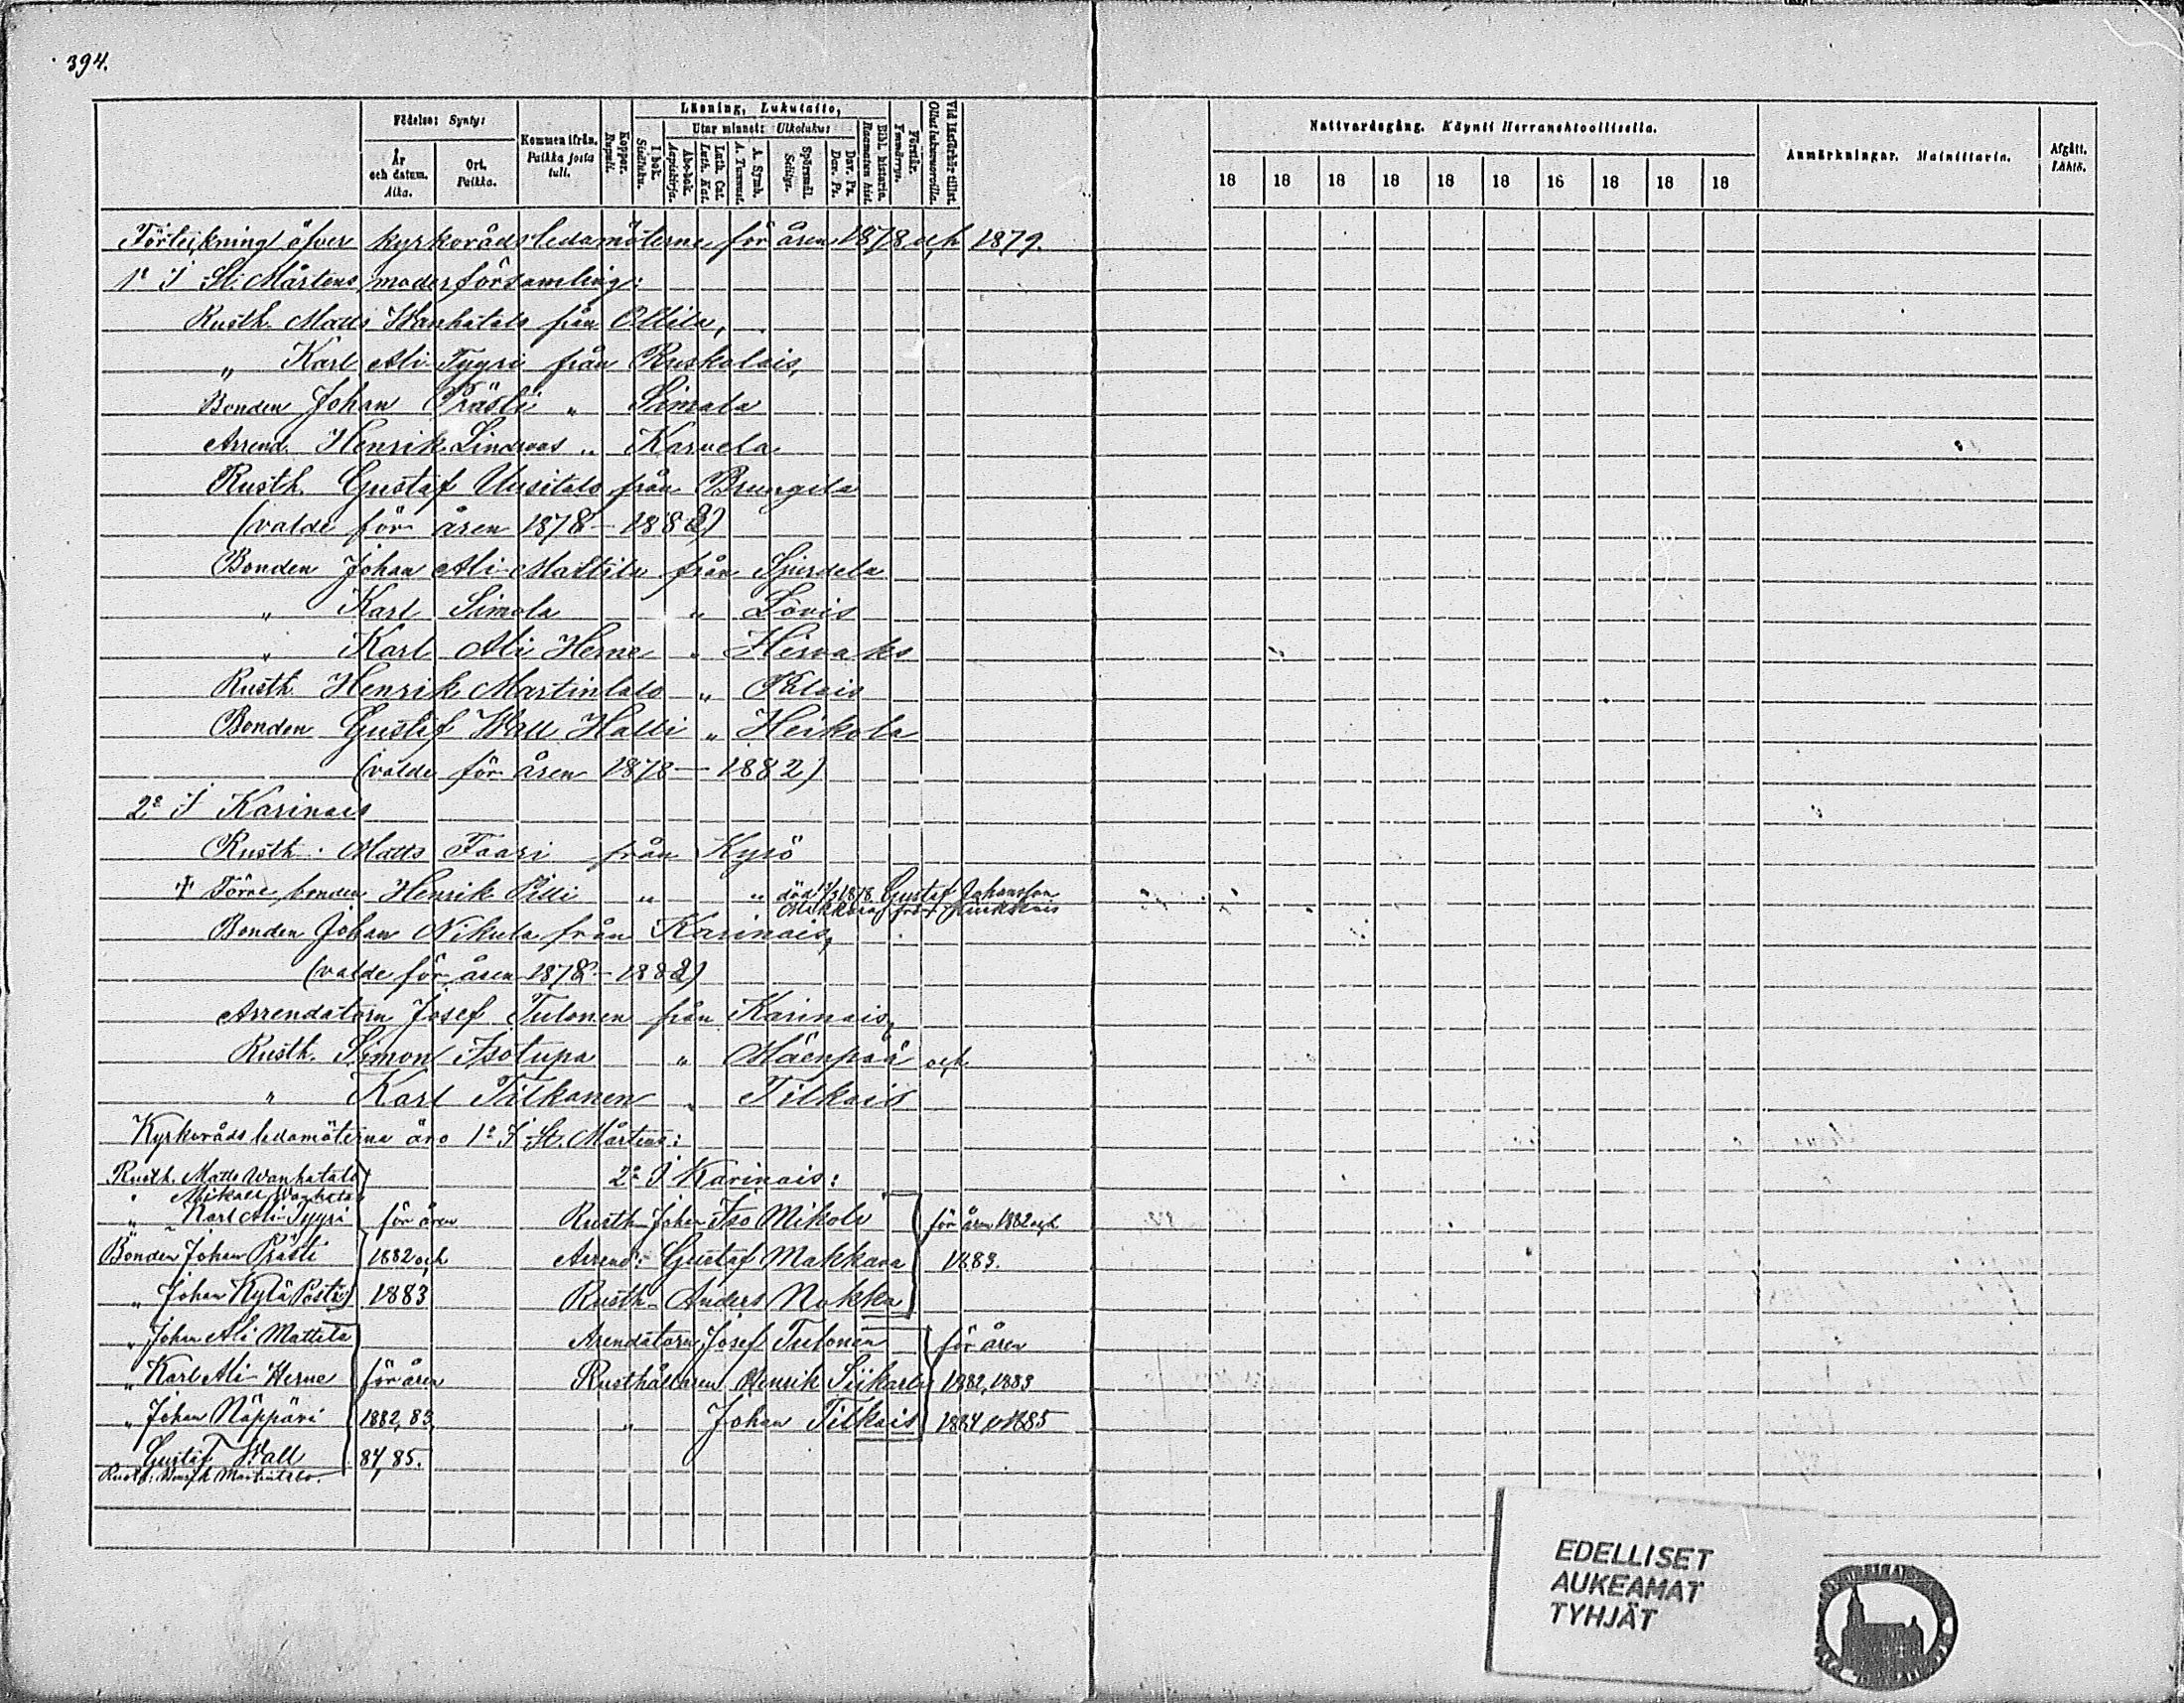 394.
Födelse: Syntyi
År och datum. Aika.
Ort. Paikka.
Kommen ifrån. Paikka josta tuli.
Koppor. Rupuli.
Läsning, Lukutaito,
I bok. Sisäluku.
Utur minnet: Ulkoluku:
Abc-bok. Aapiskirja.
Luth. Cat. Luth. Kat.
A. Symb. A. Tunnust.
Spörsmål. Selitys.
Dav. Ps. Dav. Ps.
Bibl. historia. Raamatun hist.
Förstår. Ymmärrys.
Vid läsförhör tillst. Ollut lukuvuoroilla.
Nattvardsgång. Käynti Herranehtoollisella.
18 18 18 18 18 18 16 18 18 18
Anmärkningar. Mainittavia.
Afgått. Lähtö.
Förteckning öfver kyrkorådsledamöterne för åren 1878 och 1879.
1º I St. Mårtens moderförsamling:
Rusth. Matts Wanhatalo från Ollila,
„ Karl Ali-Tyyri från Ruskalais,
Bonden Johan Prästi „ Simala
Arrend. Henrik Lindroos „ Karvela
Rusth. Gustaf Uusitalo från Brungila
(valde för åren 1878–1882)
Bonden Johan Ali-Mattila från Sjurdela
„ Karl Simola „ Lövis
„ Karl Ali Herne „ Hirvaks
Rusth. Henrik Martintalo „ Palais
Bonden Gustaf Wall Halli „ Heikola
(valde för åren 1878–1882)
2º I Karinais
Rusth. Matts Faari från Kyrö
† Förre bonden Henrik Pilli „ „ död 1878 Gustaf Johansson
Makkara från
Bonden Johan Nikula från Karinais,
(valde för åren 1878–1882)
Arrendatorn Josef Tulonen från Karinais,
Rusth. Simon Isotupa „ Mäenpää och
„ Karl Tilkanen „ Tilkais
Kyrkoråds ledamöterne äro 1º I St. Mårtens:
Rusth. Matts Wanhatalo
2º I Karinais:
„ Mikael Wanhatalo
„ Karl Ali-Tyyri för åren
Rusth. Johan Iso Mikola för åren 1882 och
Bonden Johan Prästi 1882 och
Arrend: Gustaf Makkara 1883.
„ Johan Kylä Pösti 1883
Rusth. Anders Nokka
„ Johan Ali Mattila
Arendatorn Josef Tulonen för åren
„ Karl Ali-Herne för åren
Rusthållaren Henrik Siikarla 1882, 1883
„ Johan Näppäri 1882, 83
„ Johan Tilkais 1884 o 1885
Gustaf Wall 84, 85.
Rusth: Martintalo.
EDELLISET
AUKEAMAT
TYHJÄT